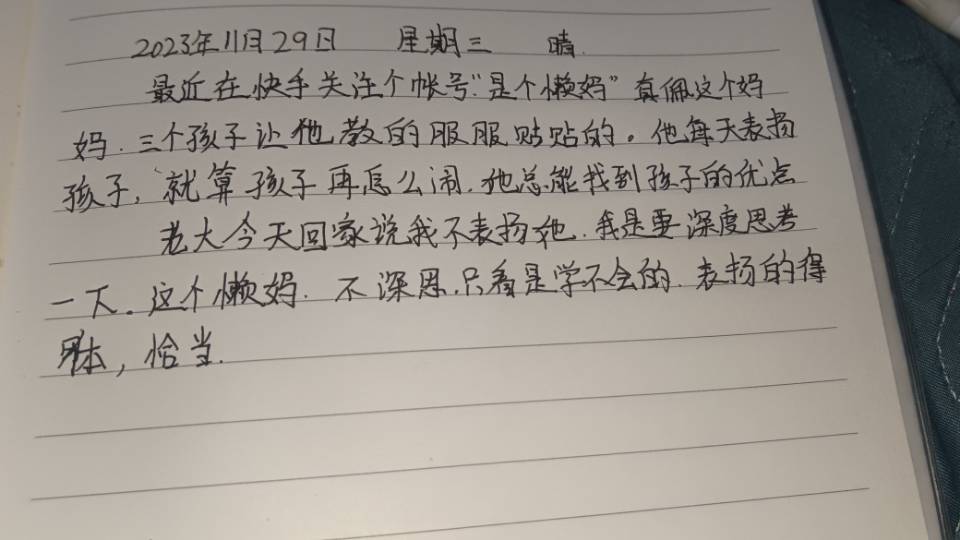 2023年11月29日 星期三 晴.
最近在快手关注个帐号"是个懒妈"真佩这个妈
妈.三个孩子让他教的服服贴贴的。他每天表扬
孩子,就算孩子再怎么闹.她总能找到孩子的优点
老大今天回家说我不表扬她.我是要深度思考
一下。这个懒妈.不深思.只看是学不会的.表扬的得
体,恰当.